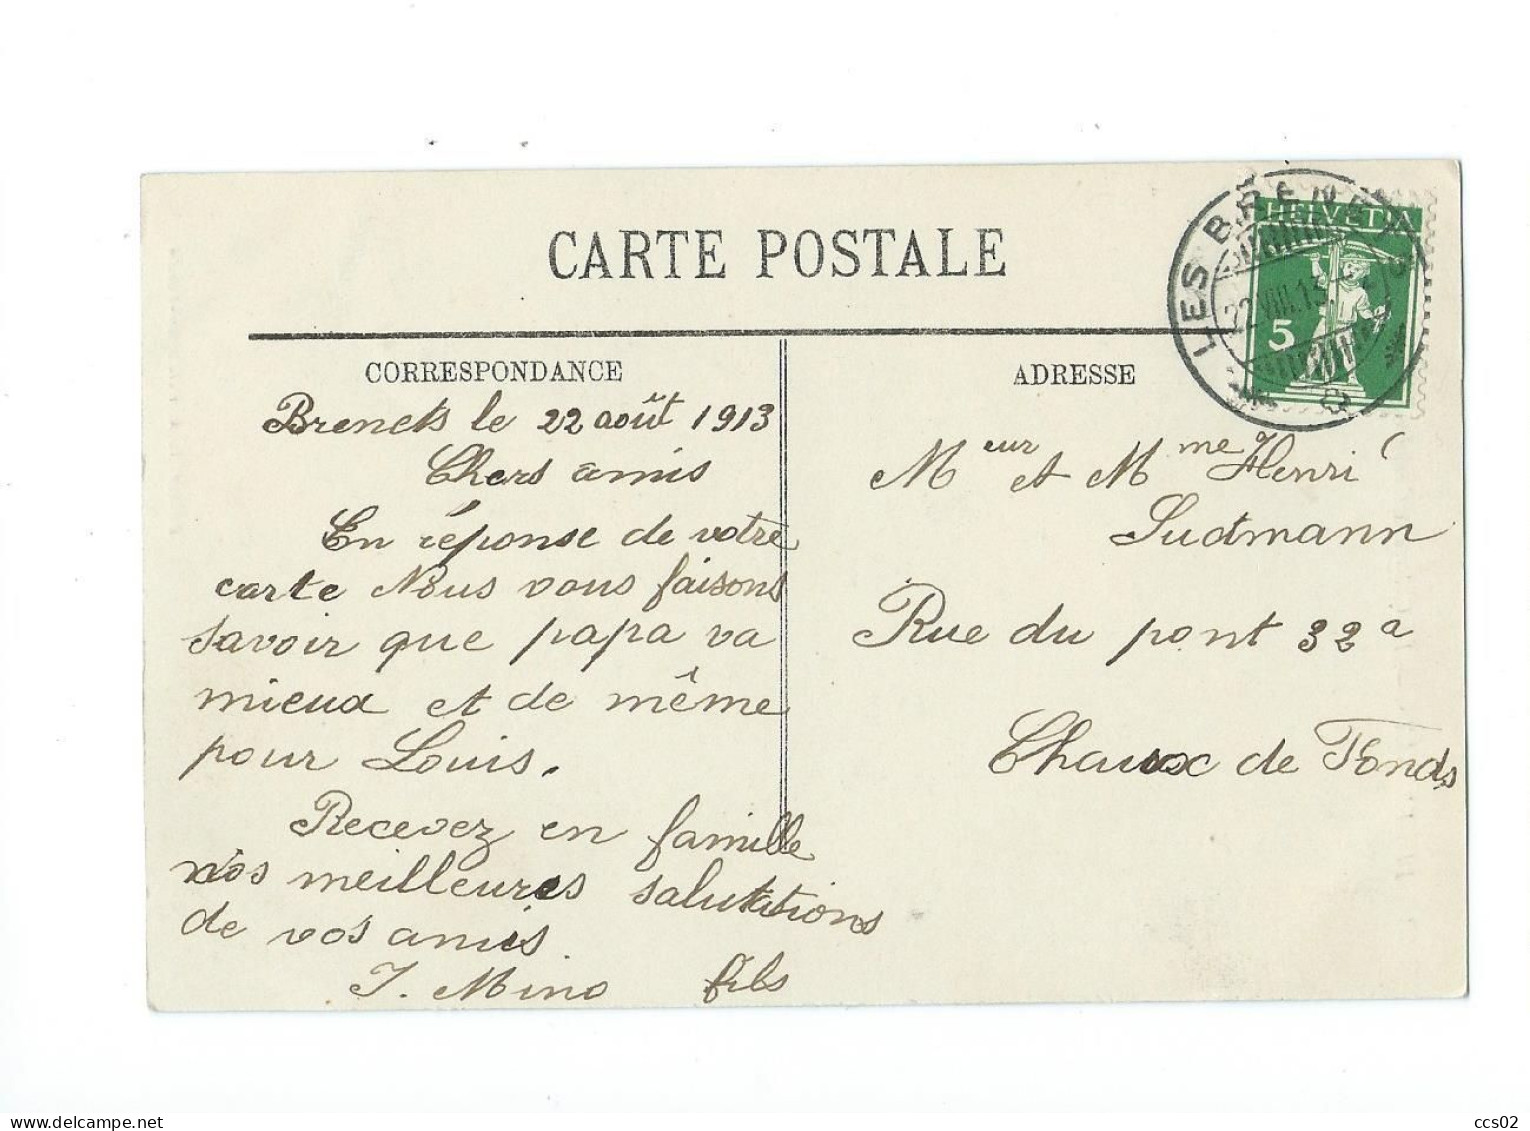 CARTE POSTALE
LES BRENETS
22.VIII.13.
HELVETIA
5
CORRESPONDANCE
Brenets le 22 août 1913
Chers amis
En réponse de votre
carte Nous vous faisons
savoir que papa va
mieux et de même
pour Louis.
Recevez en famille
nos meilleures salutations
de vos amis
J. Mino fils
ADRESSE
Meur et Mme Henri
Sudmann
Rue du pont 32a
Chaux de Fonds
ccs02